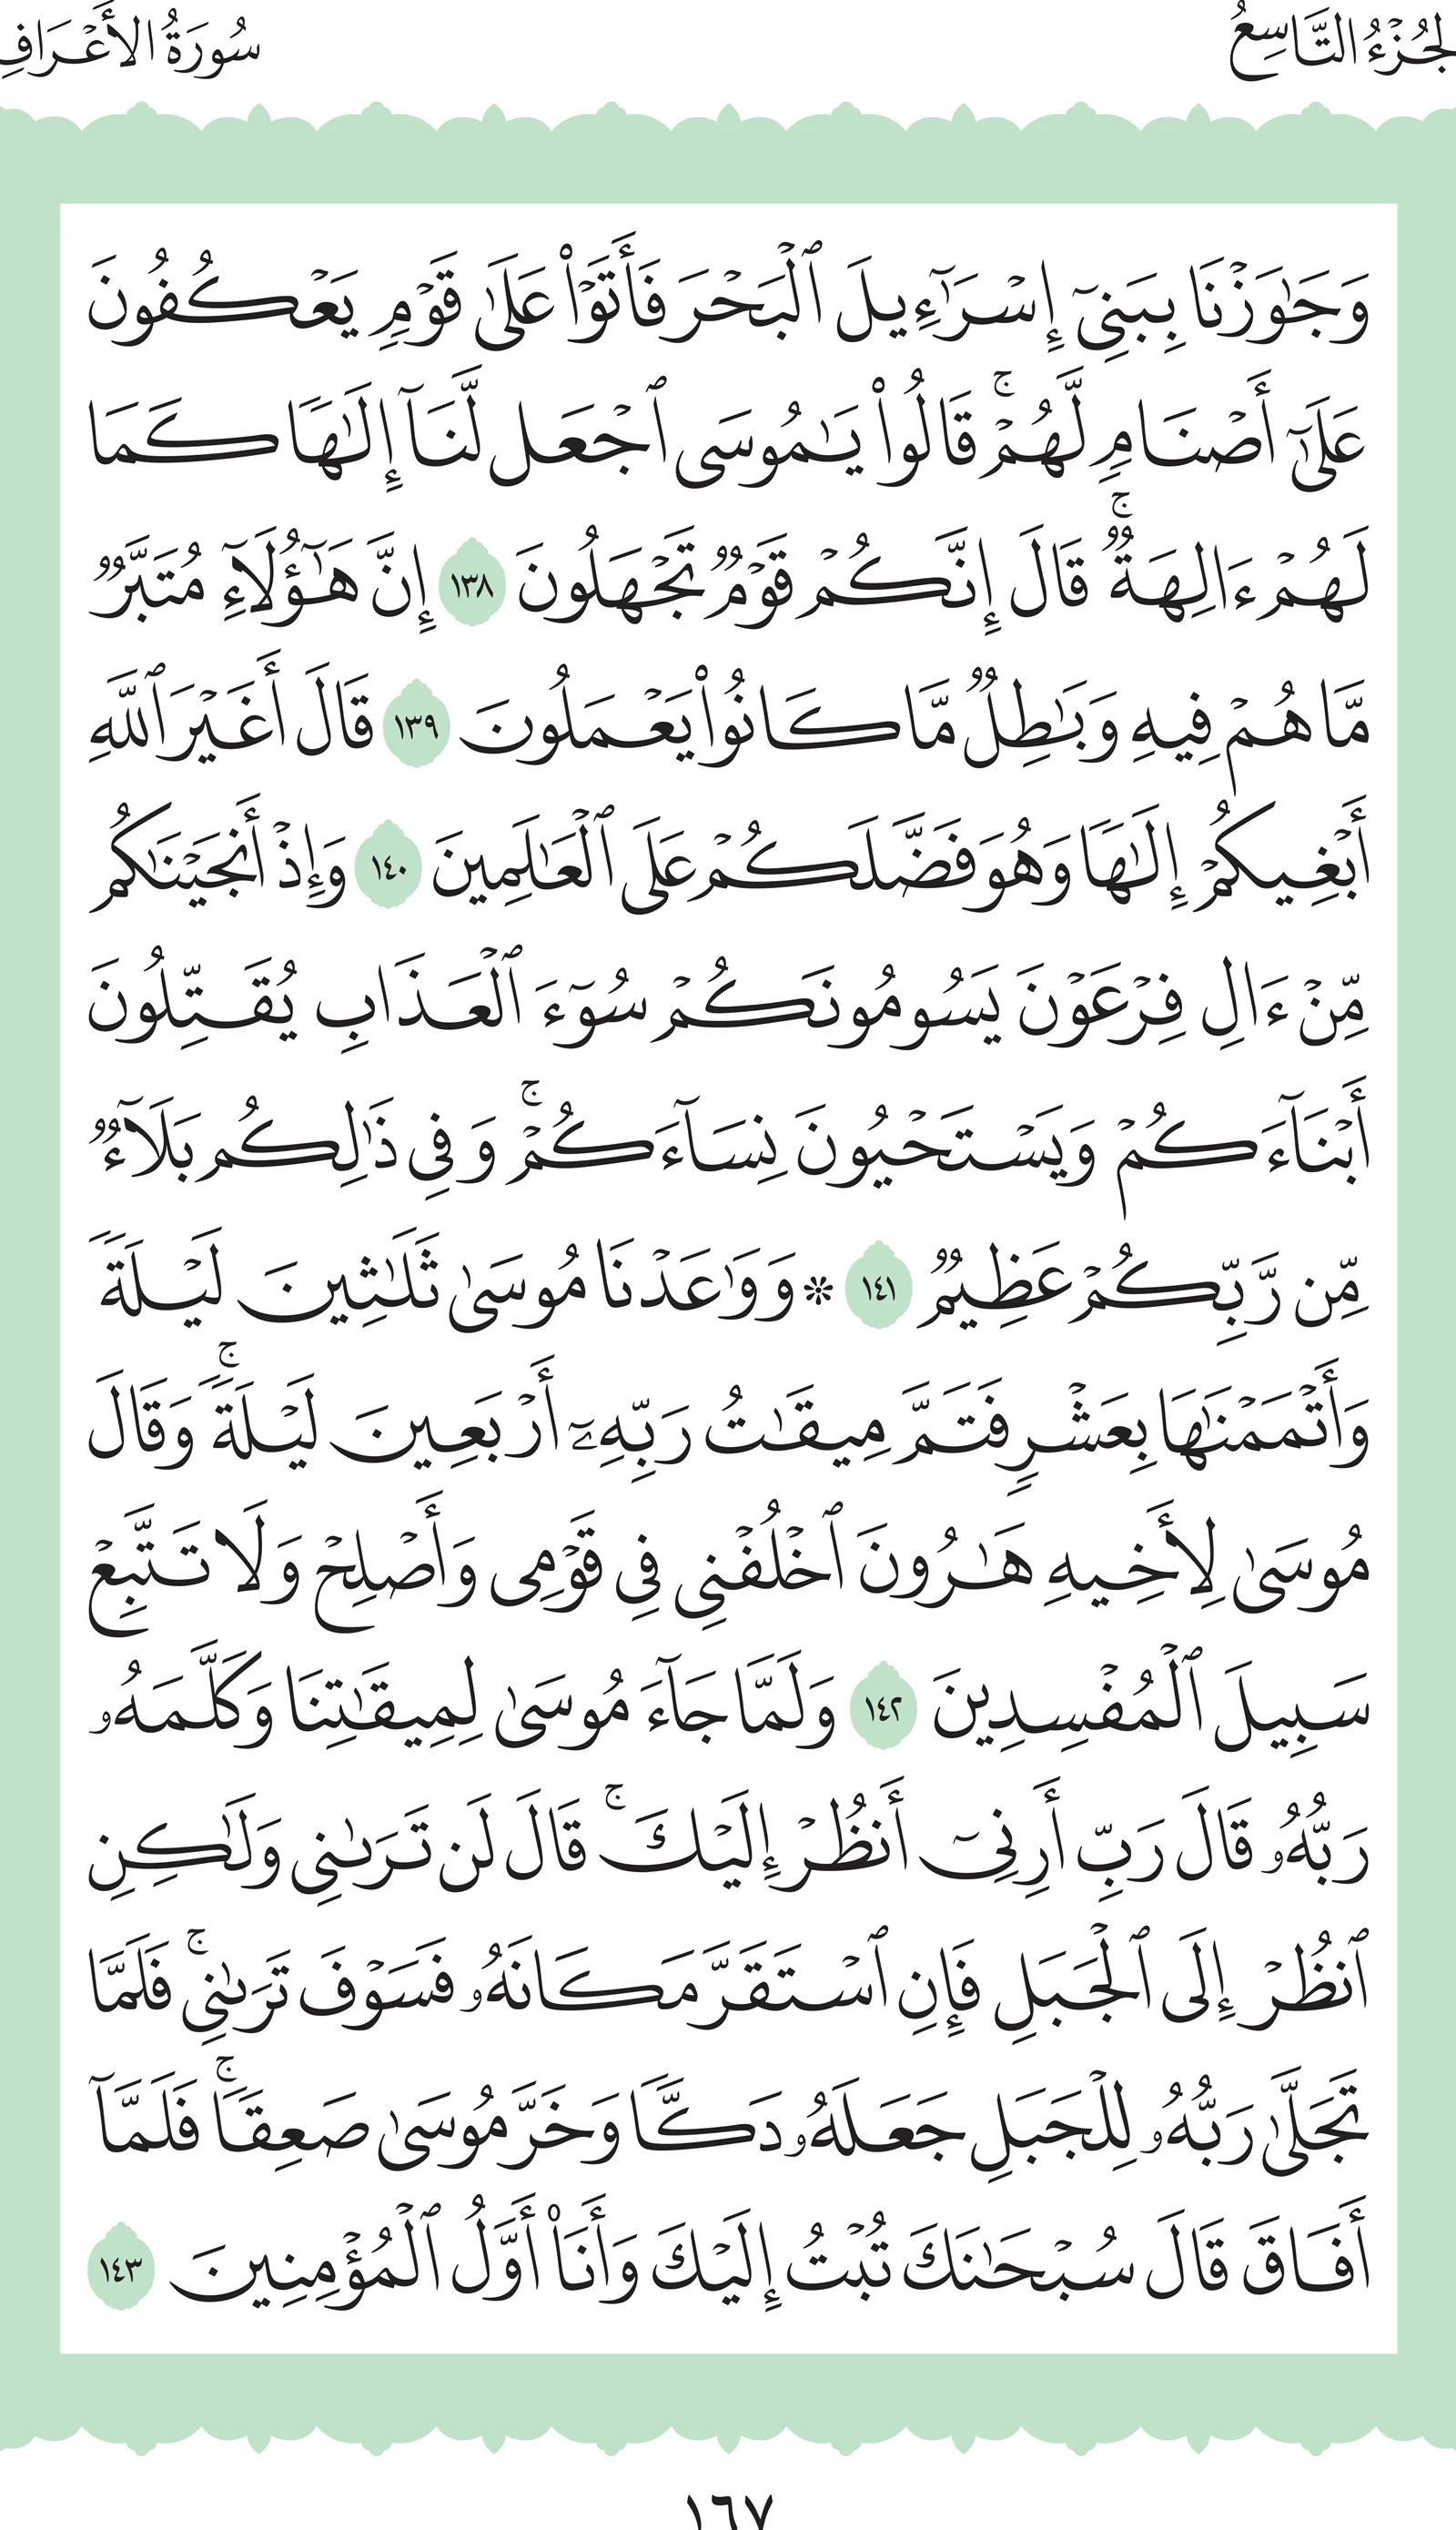 الجُزْءُ التَّاسِعُ
سُورَةُ الأَعْرَافِ
وَجَٰوَزْنَا بِبَنِىٓ إِسْرَٰٓءِيلَ ٱلْبَحْرَ فَأَتَوْا۟ عَلَىٰ قَوْمٍ يَعْكُفُونَ
عَلَىٰٓ أَصْنَامٍ لَّهُمْ ۚ قَالُوا۟ يَٰمُوسَى ٱجْعَل لَّنَآ إِلَٰهًا كَمَا
لَهُمْ ءَالِهَةٌ ۚ قَالَ إِنَّكُمْ قَوْمٌ تَجْهَلُونَ ١٣٨ إِنَّ هَٰٓؤُلَآءِ مُتَبَّرٌ
مَّا هُمْ فِيهِ وَبَٰطِلٌ مَّا كَانُوا۟ يَعْمَلُونَ ١٣٩ قَالَ أَغَيْرَ ٱللَّهِ
أَبْغِيكُمْ إِلَٰهًا وَهُوَ فَضَّلَكُمْ عَلَى ٱلْعَٰلَمِينَ ١٤٠ وَإِذْ أَنجَيْنَٰكُم
مِّنْ ءَالِ فِرْعَوْنَ يَسُومُونَكُمْ سُوٓءَ ٱلْعَذَابِ يُقَتِّلُونَ
أَبْنَآءَكُمْ وَيَسْتَحْيُونَ نِسَآءَكُمْ ۚ وَفِى ذَٰلِكُم بَلَآءٌ
مِّن رَّبِّكُمْ عَظِيمٌ ١٤١ ۞ وَوَٰعَدْنَا مُوسَىٰ ثَلَٰثِينَ لَيْلَةً
وَأَتْمَمْنَٰهَا بِعَشْرٍ فَتَمَّ مِيقَٰتُ رَبِّهِۦٓ أَرْبَعِينَ لَيْلَةً ۚ وَقَالَ
مُوسَىٰ لِأَخِيهِ هَٰرُونَ ٱخْلُفْنِى فِى قَوْمِى وَأَصْلِحْ وَلَا تَتَّبِعْ
سَبِيلَ ٱلْمُفْسِدِينَ ١٤٢ وَلَمَّا جَآءَ مُوسَىٰ لِمِيقَٰتِنَا وَكَلَّمَهُۥ
رَبُّهُۥ قَالَ رَبِّ أَرِنِىٓ أَنظُرْ إِلَيْكَ ۚ قَالَ لَن تَرَىٰنِى وَلَٰكِنِ
ٱنظُرْ إِلَى ٱلْجَبَلِ فَإِنِ ٱسْتَقَرَّ مَكَانَهُۥ فَسَوْفَ تَرَىٰنِى ۚ فَلَمَّا
تَجَلَّىٰ رَبُّهُۥ لِلْجَبَلِ جَعَلَهُۥ دَكًّا وَخَرَّ مُوسَىٰ صَعِقًا ۚ فَلَمَّآ
أَفَاقَ قَالَ سُبْحَٰنَكَ تُبْتُ إِلَيْكَ وَأَنَا۠ أَوَّلُ ٱلْمُؤْمِنِينَ ١٤٣
١٦٧